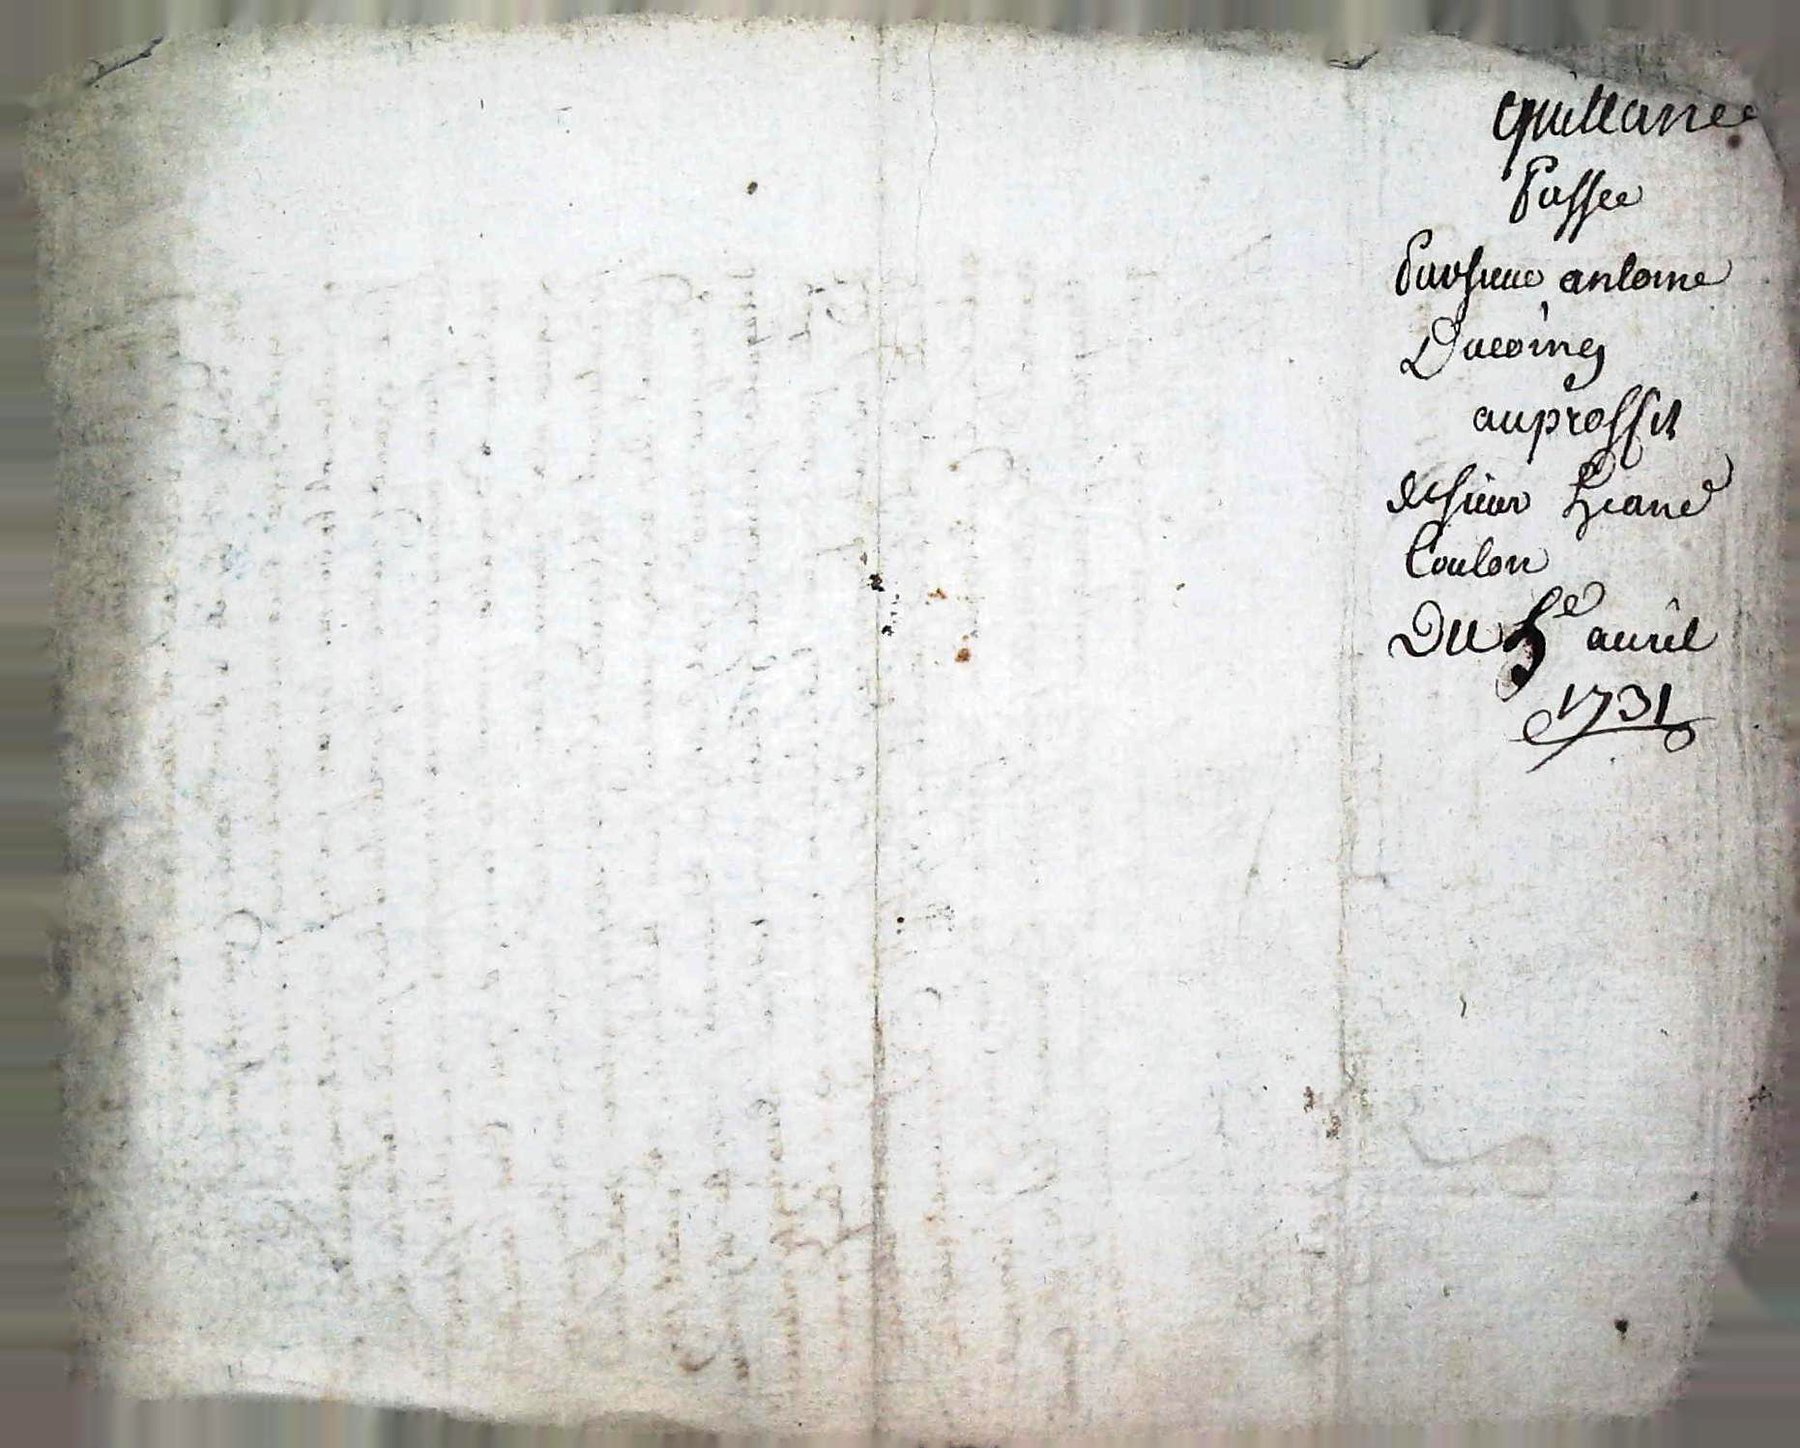 quittance
passee
par sieur antoine
Ducoing
au proffit
de sieur Jeane
Coulon
Du 5e auril
1731